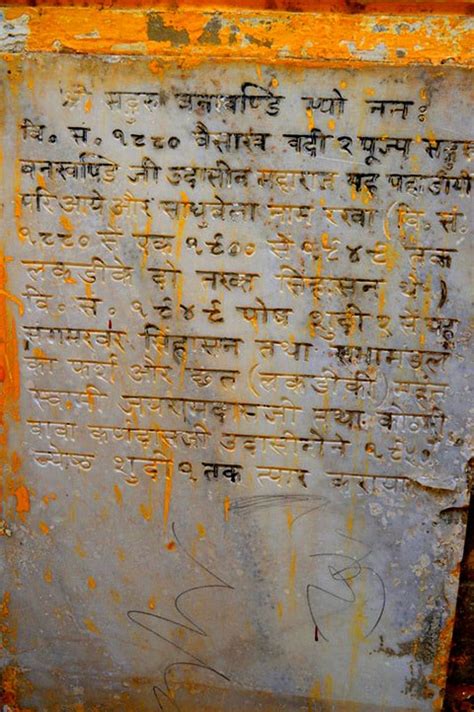 श्री सद्गुरु वनखण्डि भ्यो नमः
वि. सं. १८८० वैसाख वदी २ पूज्य सद्गुरु
वनखण्डि जी उदासीन महाराज यह पहाडीयों
परि आये और साधुबेला नाम रखा (वि. सं.
१८८० से १९०० से १९४९ तक
लकडीके दो तखत सिंहासन थे)
वि. सं. १९४९ पोष शुदी २ से
संगमरवर सिंहासन तथा सभामंडल
का फर्श और छत (लकडीकी) महंत
स्वामी जयरामदासजी तथा कोठारी
बाबा कर्णदासजी उदासीनोने १९५०
ज्येष्ठ शुदी १ तक त्यार कराया